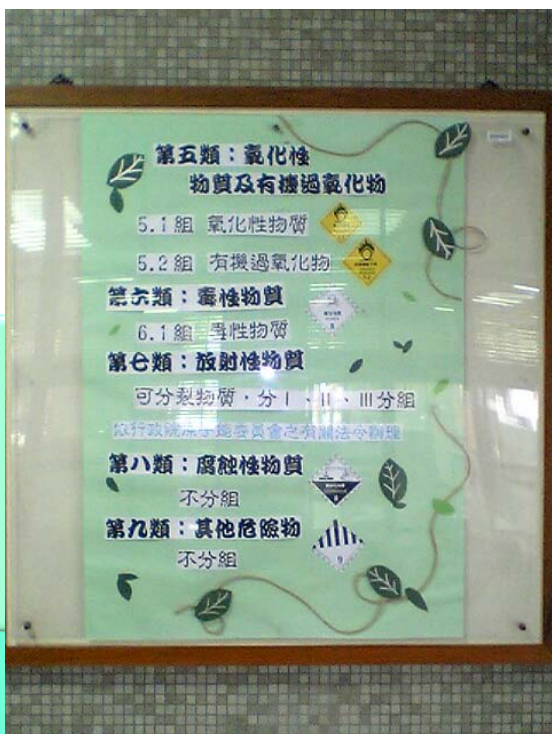 第五類：氧化性
物質及有機過氧化物
5.1組 氧化性物質
5.2組 有機過氧化物
第六類：毒性物質
6.1組 毒性物質
第七類：放射性物質
可分裂物質，分I、II、III分組
依行政院原子能委員會之有關法令辦理
第八類：腐蝕性物質
不分組
第九類：其他危險物
不分組